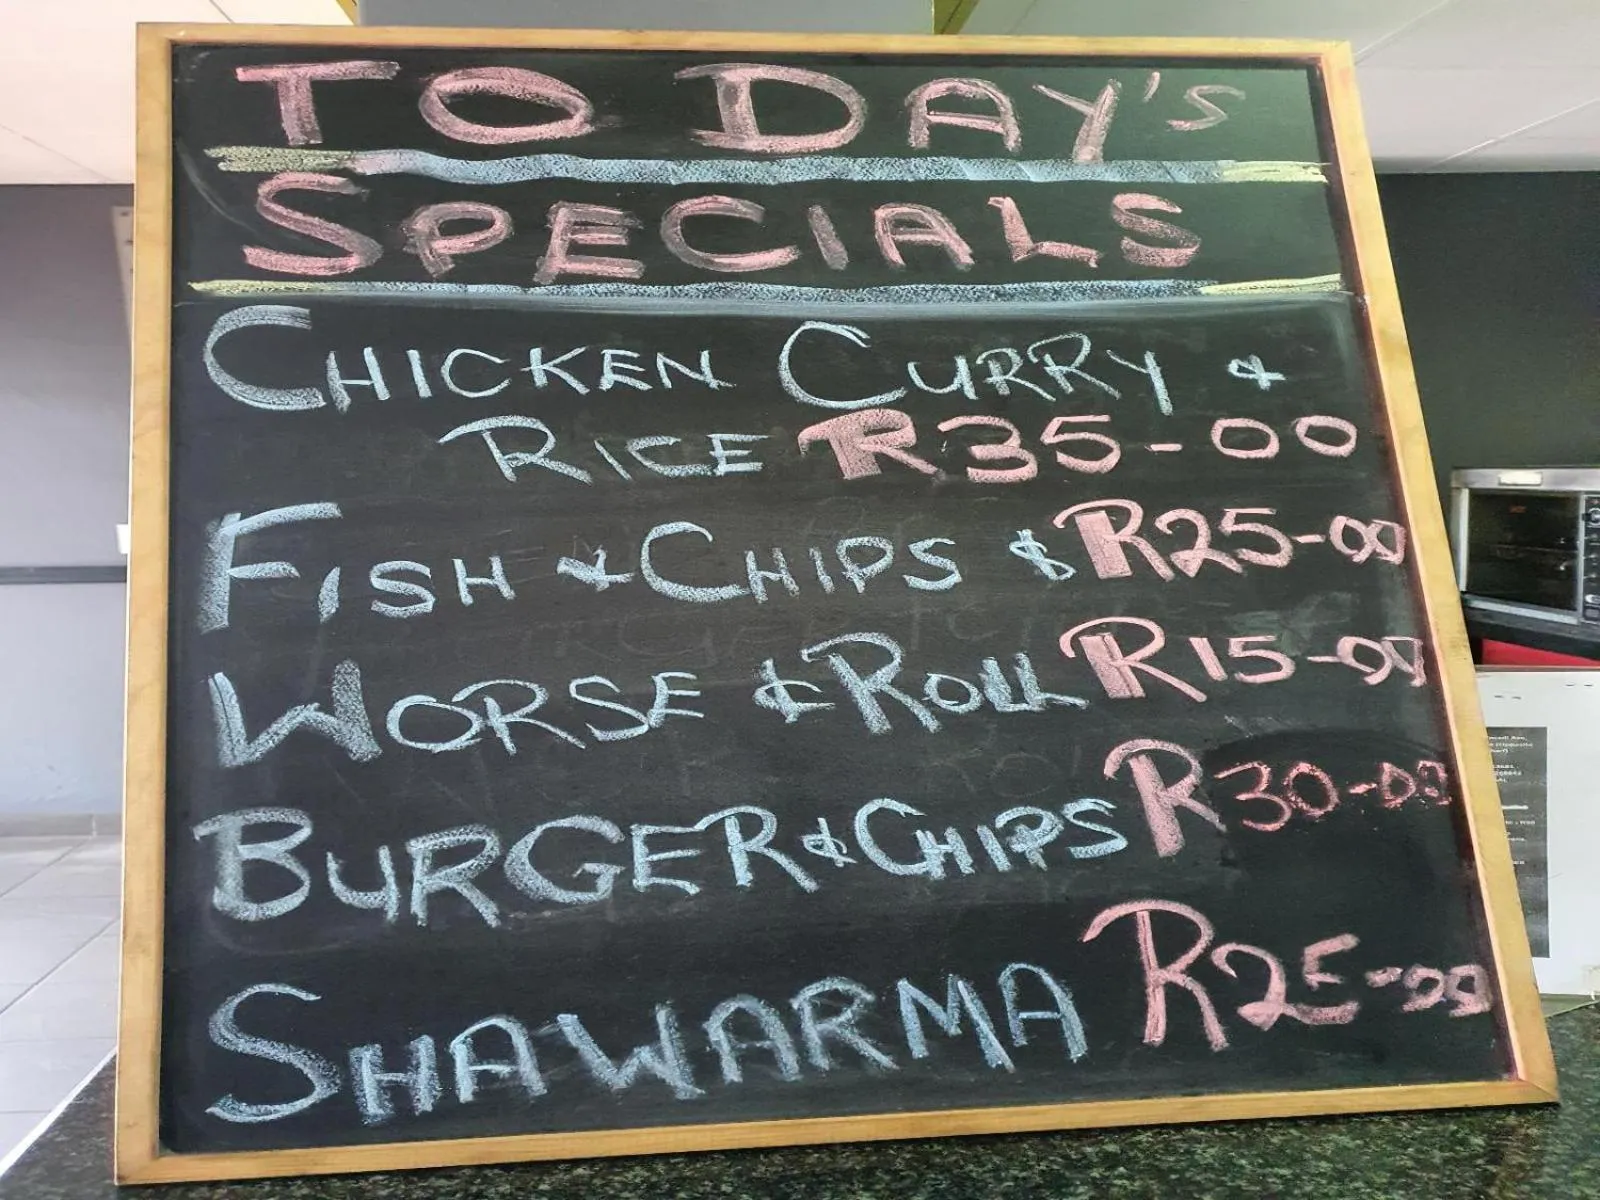 TO DAY's
SPECIALS
CHICKEN CURRY &
RICE R35-00
FISH & CHIPS $ R25-00
WORSE & ROLL R15-00
BURGER & CHIPS R30-00
SHAWARMA R25-00